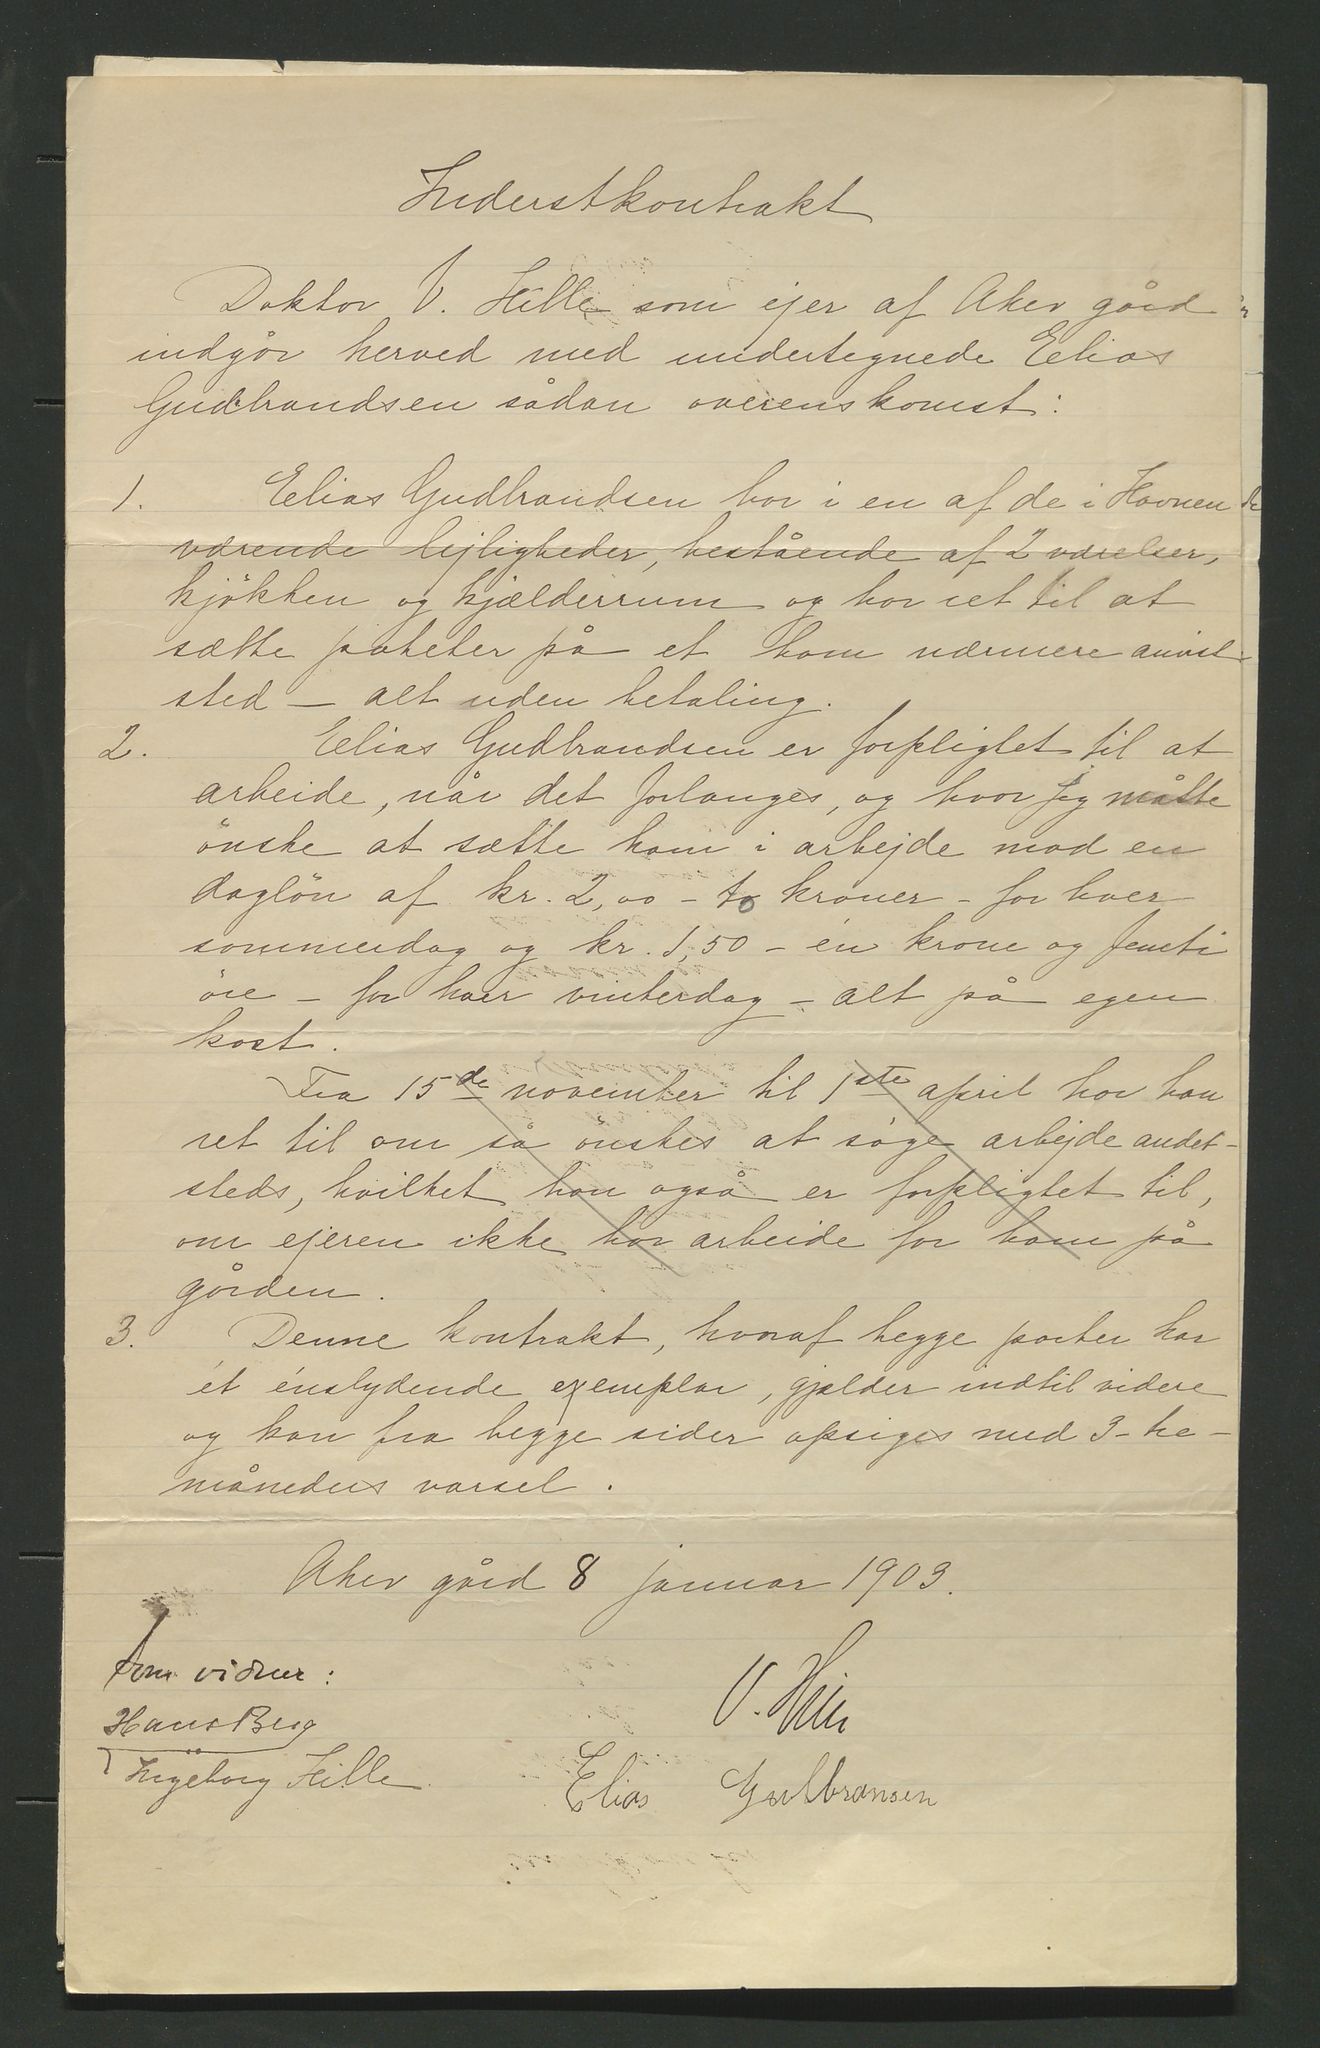 Inderstkontrakt
Doktor V. Hille som ejer af Aker gård
indgår herved med undertegnede Elias
Gudbrandsen sådan overenskomst:
1. Elias Gudbrandsen bor i en af de i Havnen
værende lejligheder, bestående af 2 værelser,
kjökken og kjælderrum og har ret til at
sætte poteter på et ham nærmere anvist
sted – alt uden betaling.
2. Elias Gudbrandsen er forpligtet til at
arbeide, når det forlanges, og hvor jeg måtte
önske at sætte ham i arbejde mod en
daglön af kr. 2,00 – to kroner – for hver
sommerdag og kr. 1,50 – én krone og femti
öre – for hver vinterdag – alt på egen
kost.
Fra 15de november til 1ste april har han
ret til om så önskes at söge arbejde andet-
steds, hvilket han også er forpligtet til,
om ejeren ikke har arbeide for ham på
gården.
3. Denne kontrakt, hvoraf begge parter har
ét énslydende exemplar, gjælder indtil videre
og kan fra begge sider opsiges med 3 – tre –
måneders varsel.
Aker gård 8 januar 1903.
Som vidner:
V. Hille
Hans Berg
Ingeborg Hille
Elias Gulbransen